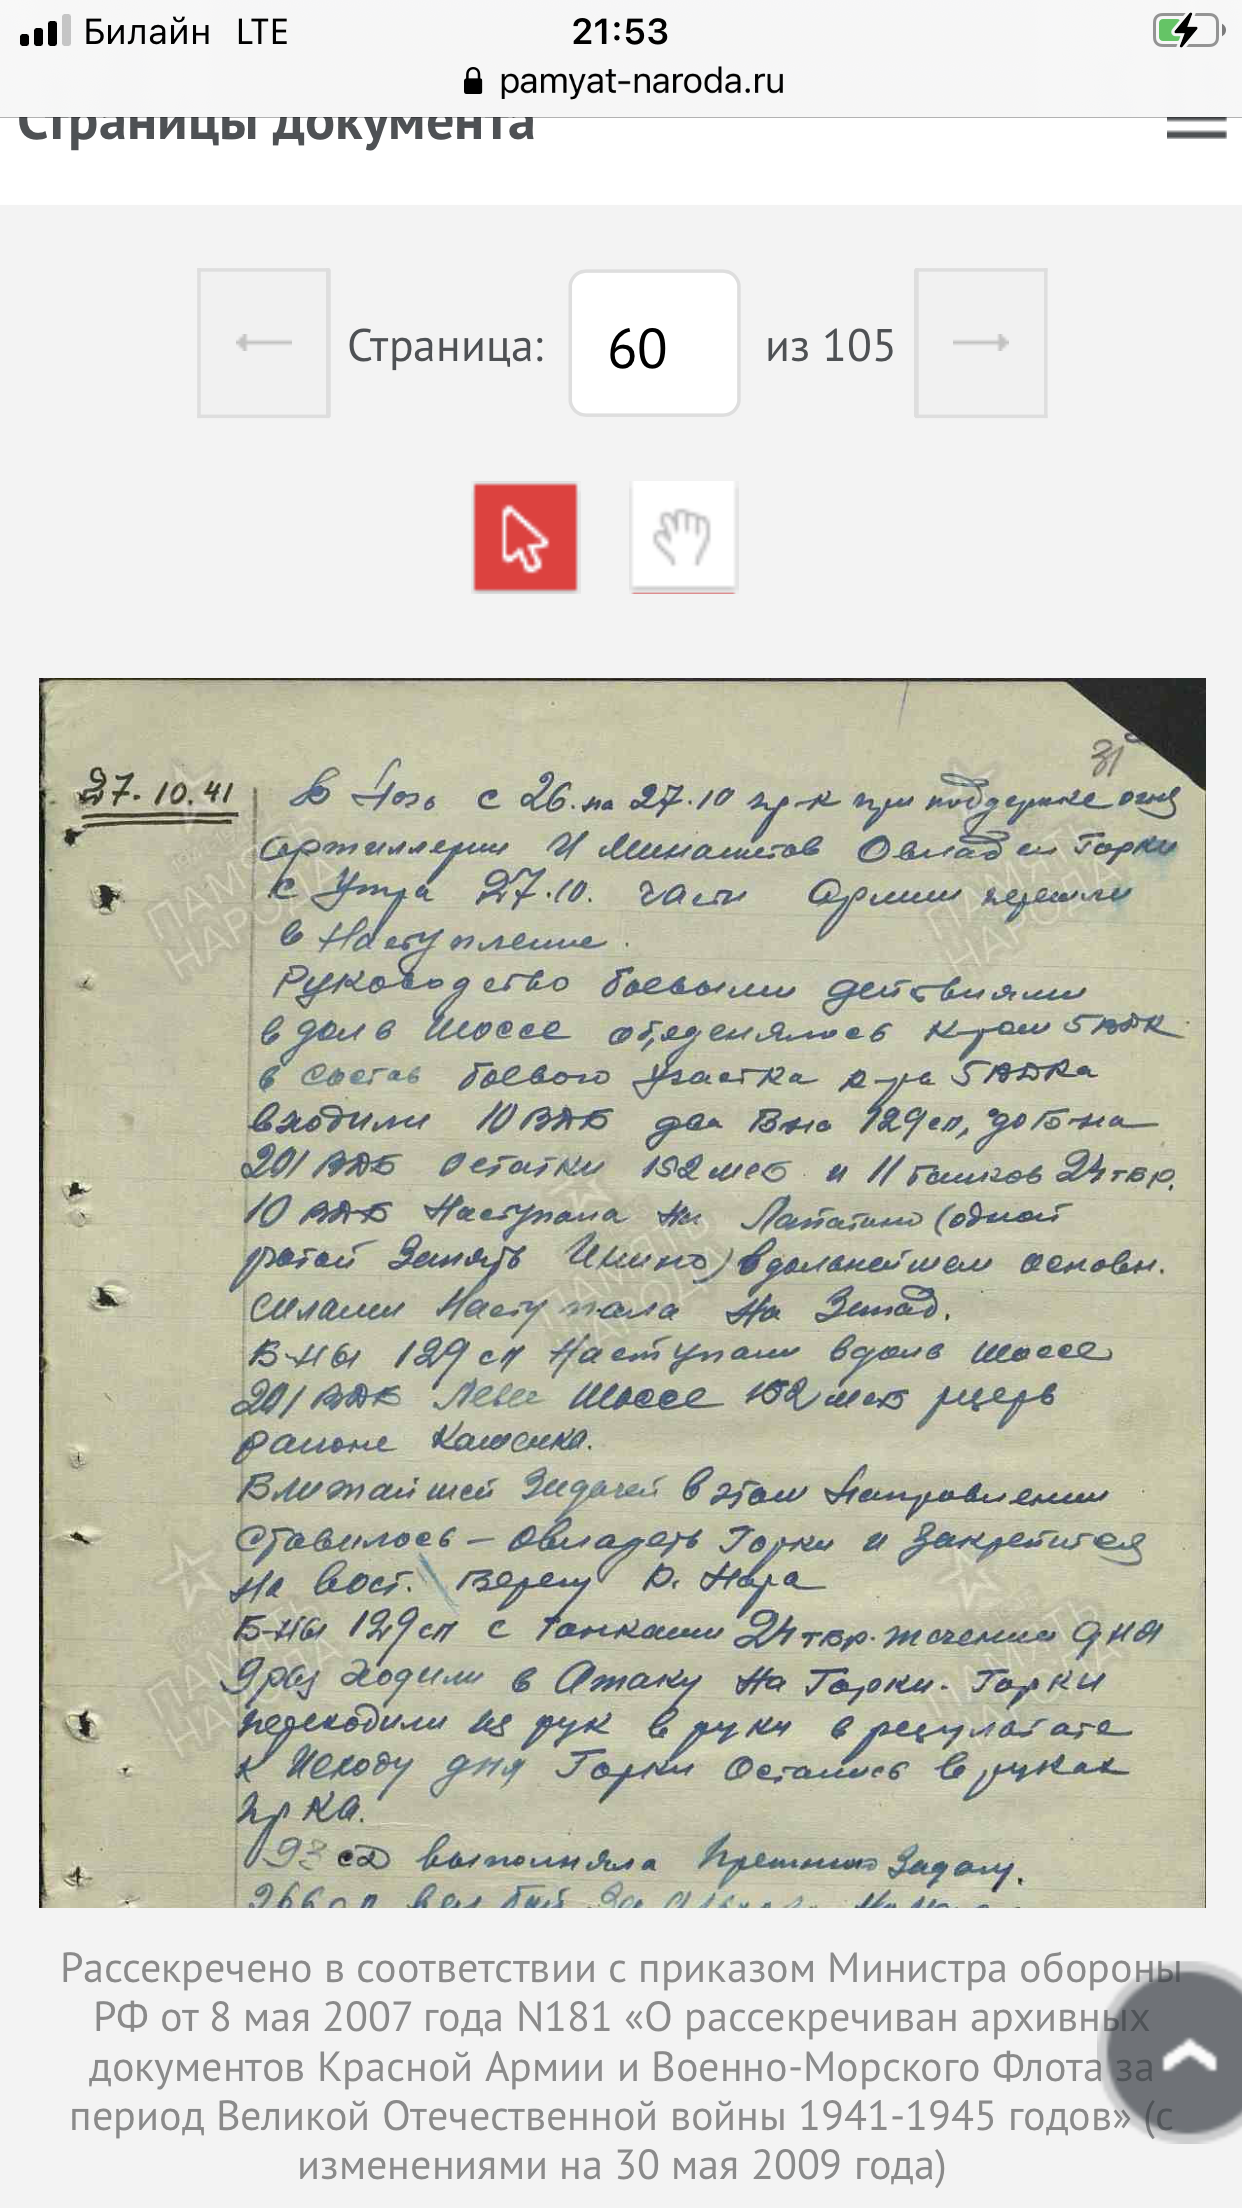 Билайн LTE 21:53
pamyat-naroda.ru
Страницы документа
Страница: 60 из 105
31
27.10.41
В Ночь с 26 на 27.10 пр-к при поддержке огня
Артиллерии И Минометов Овладел Горки
с Утра 27.10. части Армии перешли
в Наступление.
Руководство боевыми действиями
вдоль шоссе объеденялось к-ром 5 ВДК
в состав боевого участка к-ра 5 ВДКа
входили 10 ВДБ два Б-на 129 сп, до Б-на
201 ВДБ Остатки 152 мсб и 11 танков 24 тбр.
10 ВДБ Наступала на (одной
ротой Занять Инино) в дальнейшем основн.
силами Наступала На Запад.
Б-ны 129 сп Наступали вдоль шоссе
201 ВДБ Левее Шоссе 152 мсб резерв
районе Каменка.
Ближайшей Задачей в этом Направлении
Ставилось – Овладеть Горки и Закрепится
На Вост. Берегу р. Нара
Б-ны 129 сп с танками 24 тбр. течении дня
ходили в Атаку На Горки. Горки
переходили из рук в руки в результате
к Исходу дня Горки Остались в руках
пр-ка.
93 сд выполняла Прежнюю Задачу.
266 сп вел бой За
ПАМЯТЬ НАРОДА
Рассекречено в соответствии с приказом Министра обороны
РФ от 8 мая 2007 года N181 «О рассекречиван архивных
документов Красной Армии и Военно-Морского Флота за
период Великой Отечественной войны 1941-1945 годов» (с
изменениями на 30 мая 2009 года)